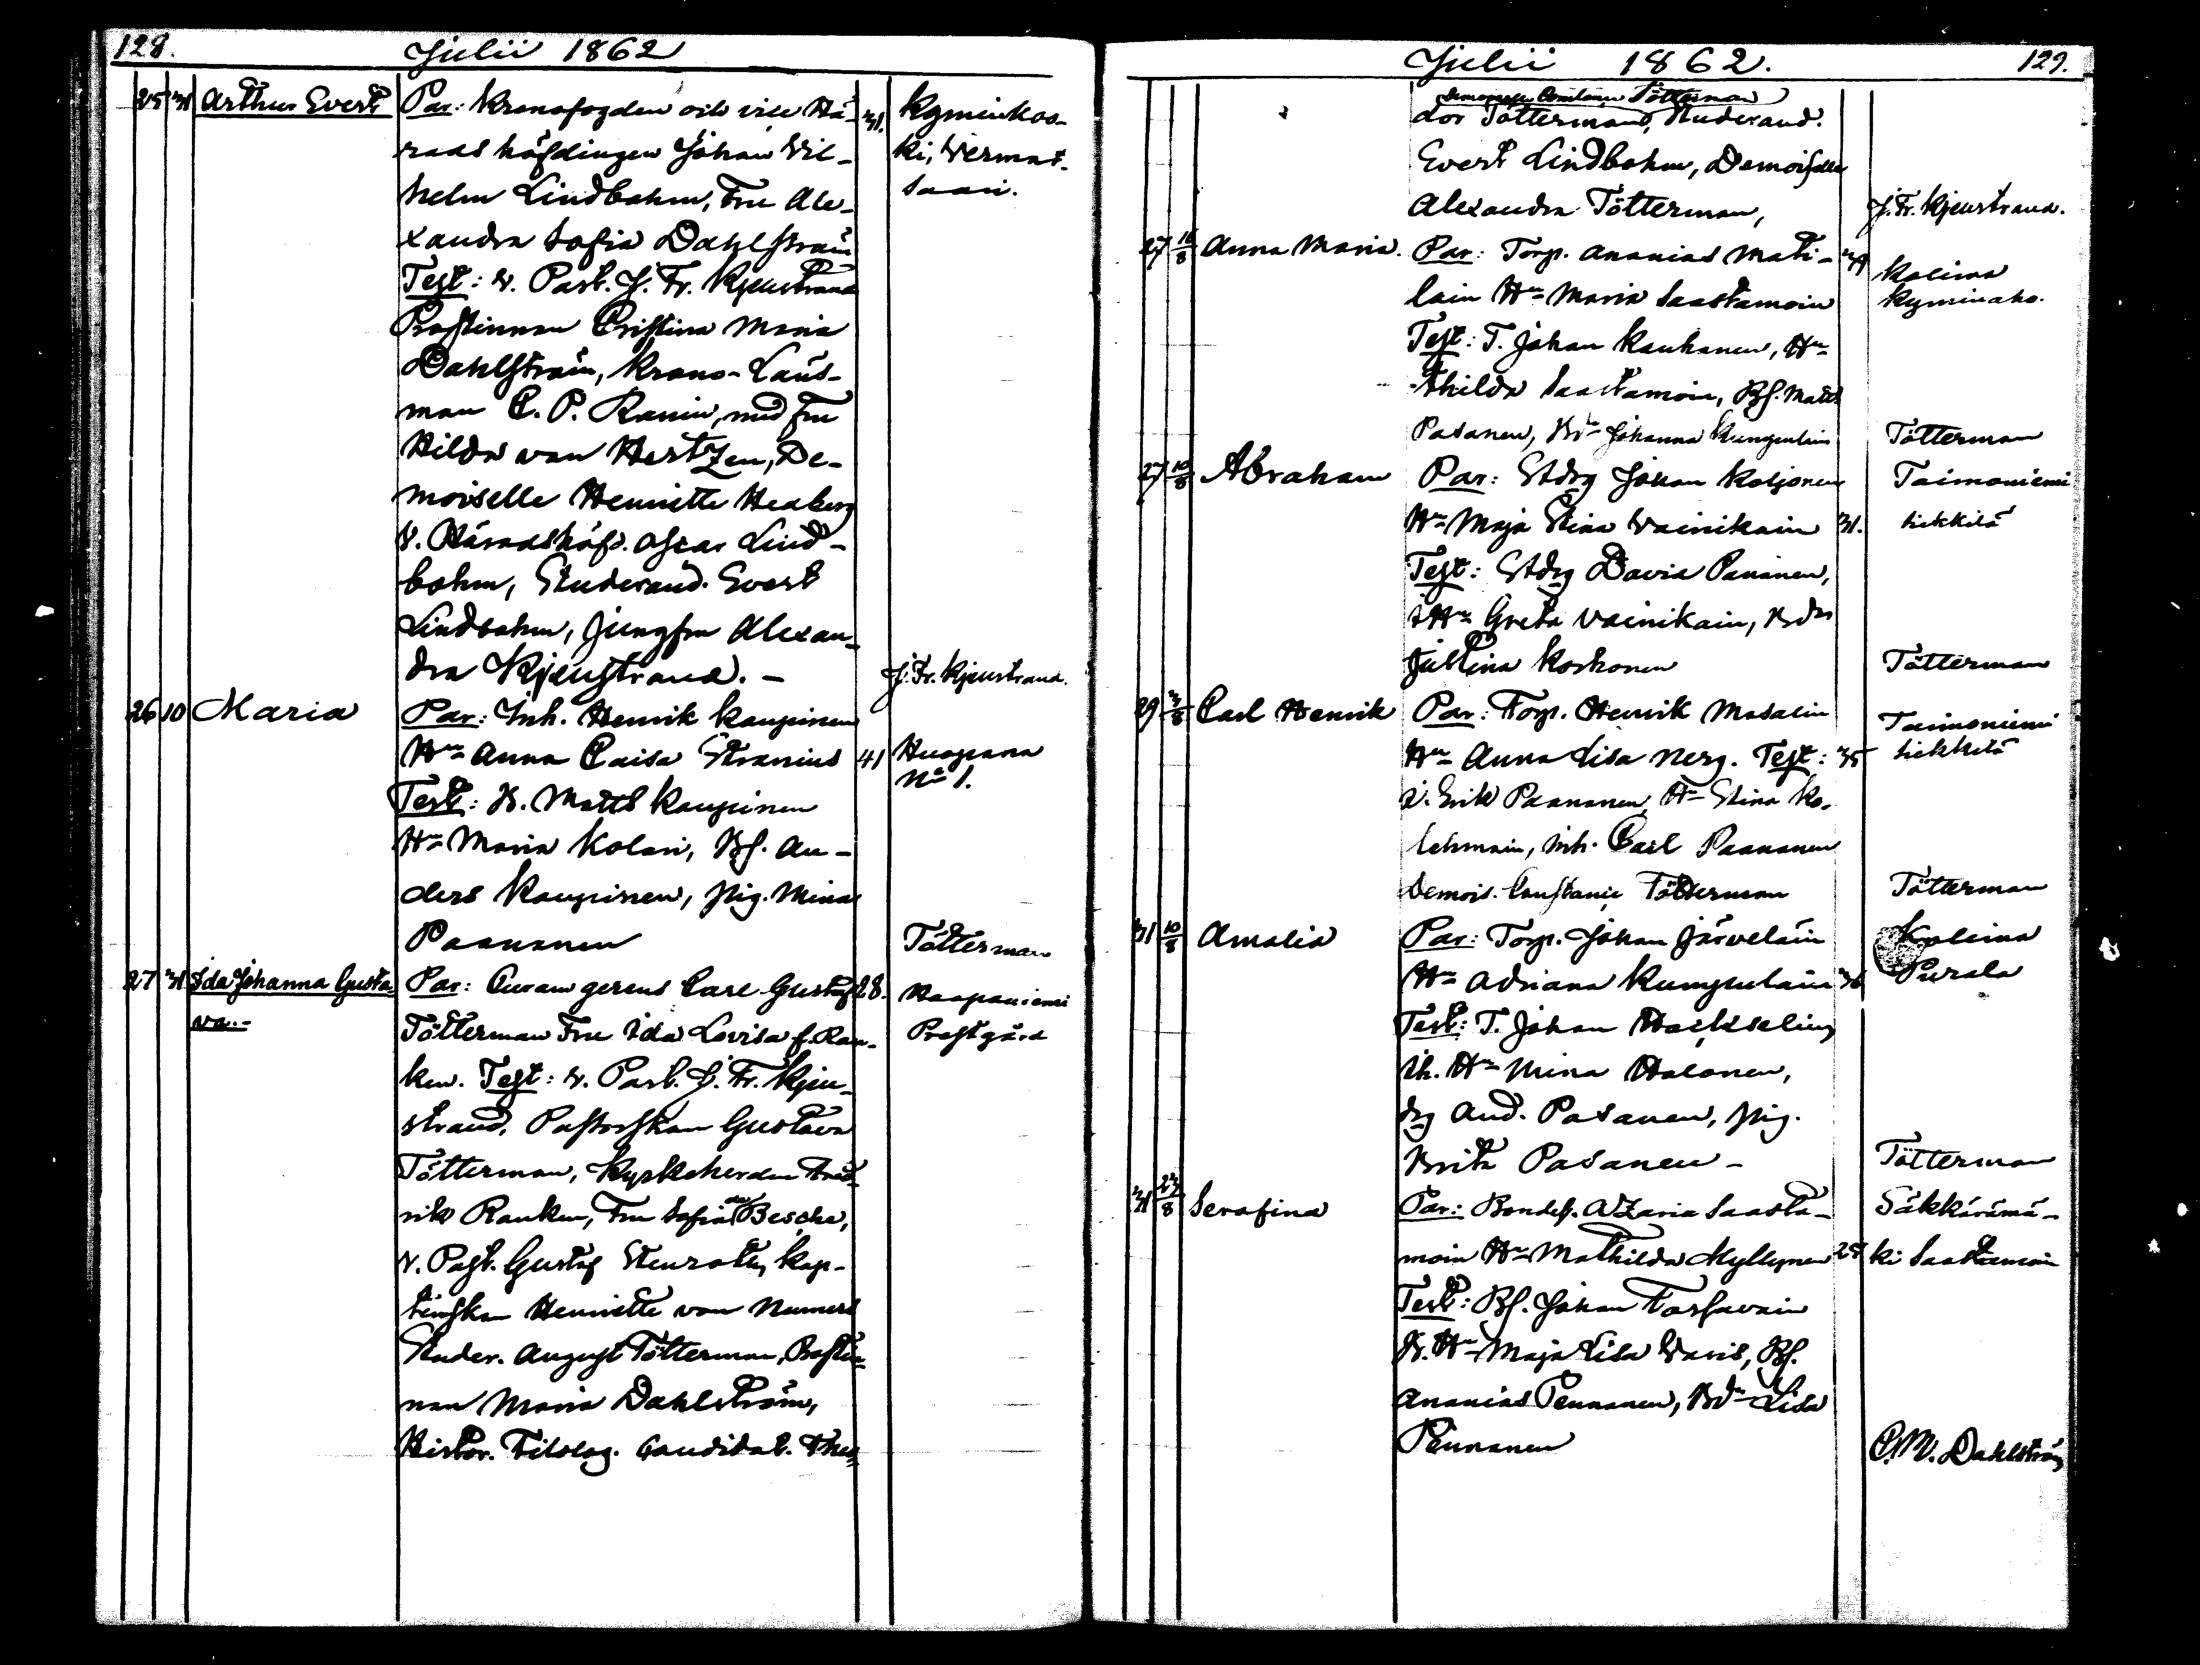 128.
Julii 1862
25 31 Arthur Evert
Par: Kronofogden och vice Hä-
radshöfdingen Johan Wil-
helm Lindbohm, Fru Ale-
xandra Sofia Dahlström
Test: v. Past. J. Fr. Kjenstrand
Prostinnan Cristina Maria
Dahlström, Krono-Läns-
man C. P. Ranin, med Fru
Hilda von Hertzen, De-
moiselle Henriette Heaberg
V. Häradshöfd. Oscar Lind-
bohm, Studerand. Evert
Lindbohm, Jungfru Alexan-
dra Kjenstrand. -
31.
Kyminkos-
ki, Wermat-
saari.
J. Fr. Kjenstrand.
26 10 Maria
Par: Inh. Henrik Kaupinen
Hu Anna Caisa Stranius 41
Test: B. Matts Kaupinen
Hu Maria Kolari, Bf. An-
ders Kaupinen, Pig. Mina
Paananen
Huopana
No 1.
Tötterman
27 31 Ida Johanna Gusta-
va.-
Par: Curam gerens Carl Gustaf 28.
Tötterman Fru Ida Lovisa f. Ran-
ken. Test: v. Past. J. Fr. Kjen-
strand, Pastorskan Gustava
Tötterman, Kyrkoherden Fred-
rik Ranken, Fru Sofia de Besche,
v. Past. Gustaf Stenroth, Kap-
tenskan Henriette von Numers
Studer. August Tötterman, Prostin-
nan Maria Dahlström,
Histor. Filolog. Candidat. Theo-
Haapaniemi
Prestgård
Julii 1862.
129.
Demoiselle Constance Tötterman
dor Tötterman, Studerand.
Evert Lindbohm, Demoiselle
Alexandra Tötterman,
J. Fr. Kjenstrand.
27 10/8 Anna Maria.
Par: Torp. Ananias Mati-
lain Hu Maria Saastamoin
Test: T. Johan Kauhanen, Hu
Thilda Saastamoin, Bf. Matts
Pasanen, Bdr Johanna Kumpulain
Kolima
Kyminaho.
Tötterman
27 10/8 Abraham
Par: Stdrg Johan Koljonen
Hu Maja Stina Wainikain 31.
Test: Stdrg David Pananen,
i Hu Greta Vainikain, Bdr
Justina Korhonen
Taimoniemi
Hekkilä
Tötterman
29 3/8 Carl Henrik
Par: Torp. Henrik Masalin
Hu Anna Lisa Nerg. Test: 35
I. Erik Paananen, Hu Stina Ko-
lehmain, Inh. Carl Paananen
Demois. Constance Tötterman
Taimoniemi
Hekkilä
Tötterman
31 10/8 Amalia
Par: Torp. Johan Järveläin
Hu Adriana Kumpulain 36
Test: T. Johan Hackselius,
Ih. Hu Mina Halonen,
Drg And. Pasanen, Pig.
Brita Pasanen -
Kolima
Purala
Tötterman
31 23/8 Serafina
Par: Bondes. Azaria Saasta-
moin Hu Mathilda Myllynen 24
Test: Bf. Johan Tarfvain
B. Hu Maja Lisa Varis, Bf.
Ananias Pennanen, Bdr Lisa
Pennanen
Säkkärämä-
ki Saastamoin
C. M. Dahlström